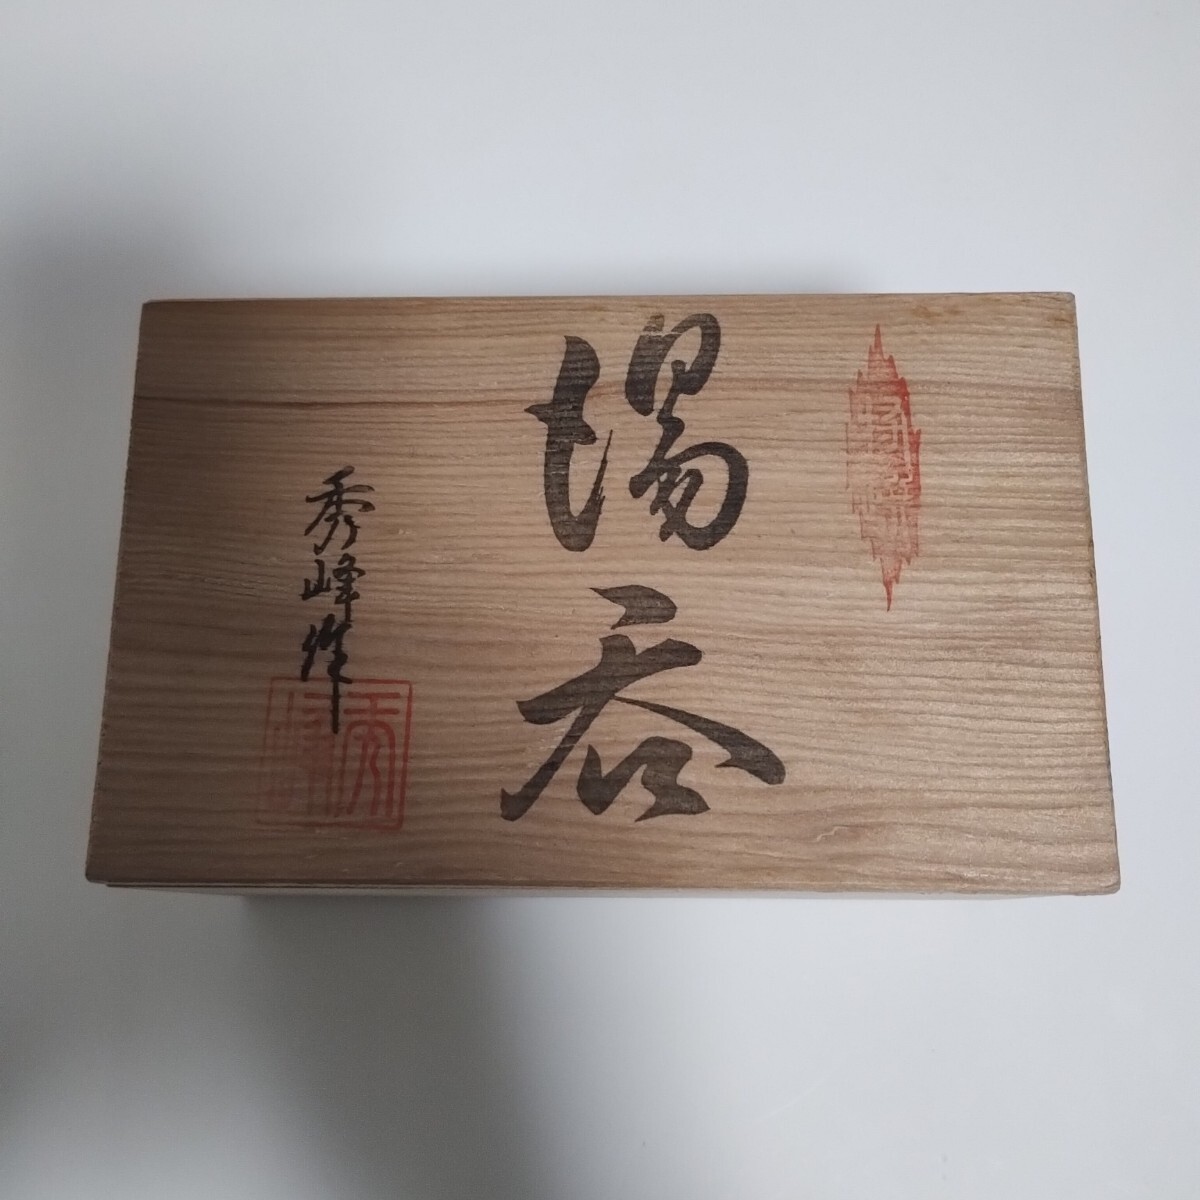 湯呑
秀峰作
秀峰